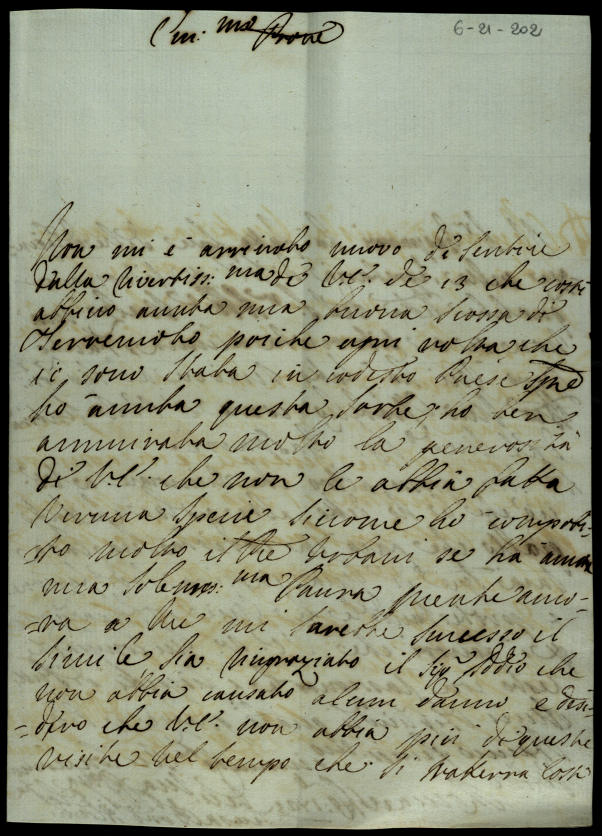 Em:ma Prone
6-21-202
Non mi è arrivato nuovo di sentire
dalla riveritiss:ma di V.E. de 13 che costi
abbino avuta una buona scossa di
Terremoto poiche ogni volta che
io sono stata in codesto Paese
ho avuta questa sorte; ho ben
ammirata molto la generosità
di V.E. che non le abbia fatta
veruna specie siccome ho compati-
to molto il se ha avuta
una solenniss:ma Paura mente anco-
ra a me mi sarebbe successo il
simile sia ringraziato il Sig. Iddio che
non abbia causato alcun danno e desi-
dero che V.E. non abbia più di queste
visite nel tempo che si tratterra costi